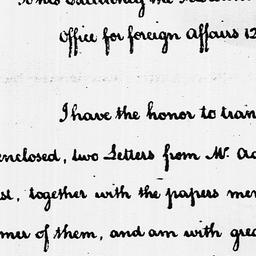 To His Excellency the President
Office for foreign Affairs 12
I have the honor to tran
enclosed, two Letters from Mr. Ad
st, together with the papers men
mer of them, and am with grea